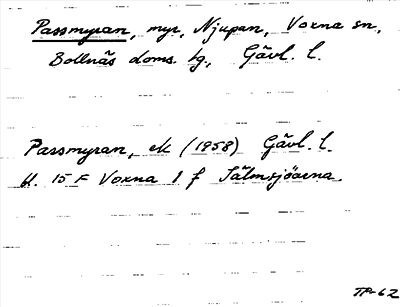 Passmyran, myr, Njupan, Voxna sn,
Bollnäs doms. lg., Gävl. l.
Passmyran, ek (1958) Gävl. l.
bl. 15 F Voxna 1 f Sälmsjöarna
TP-62